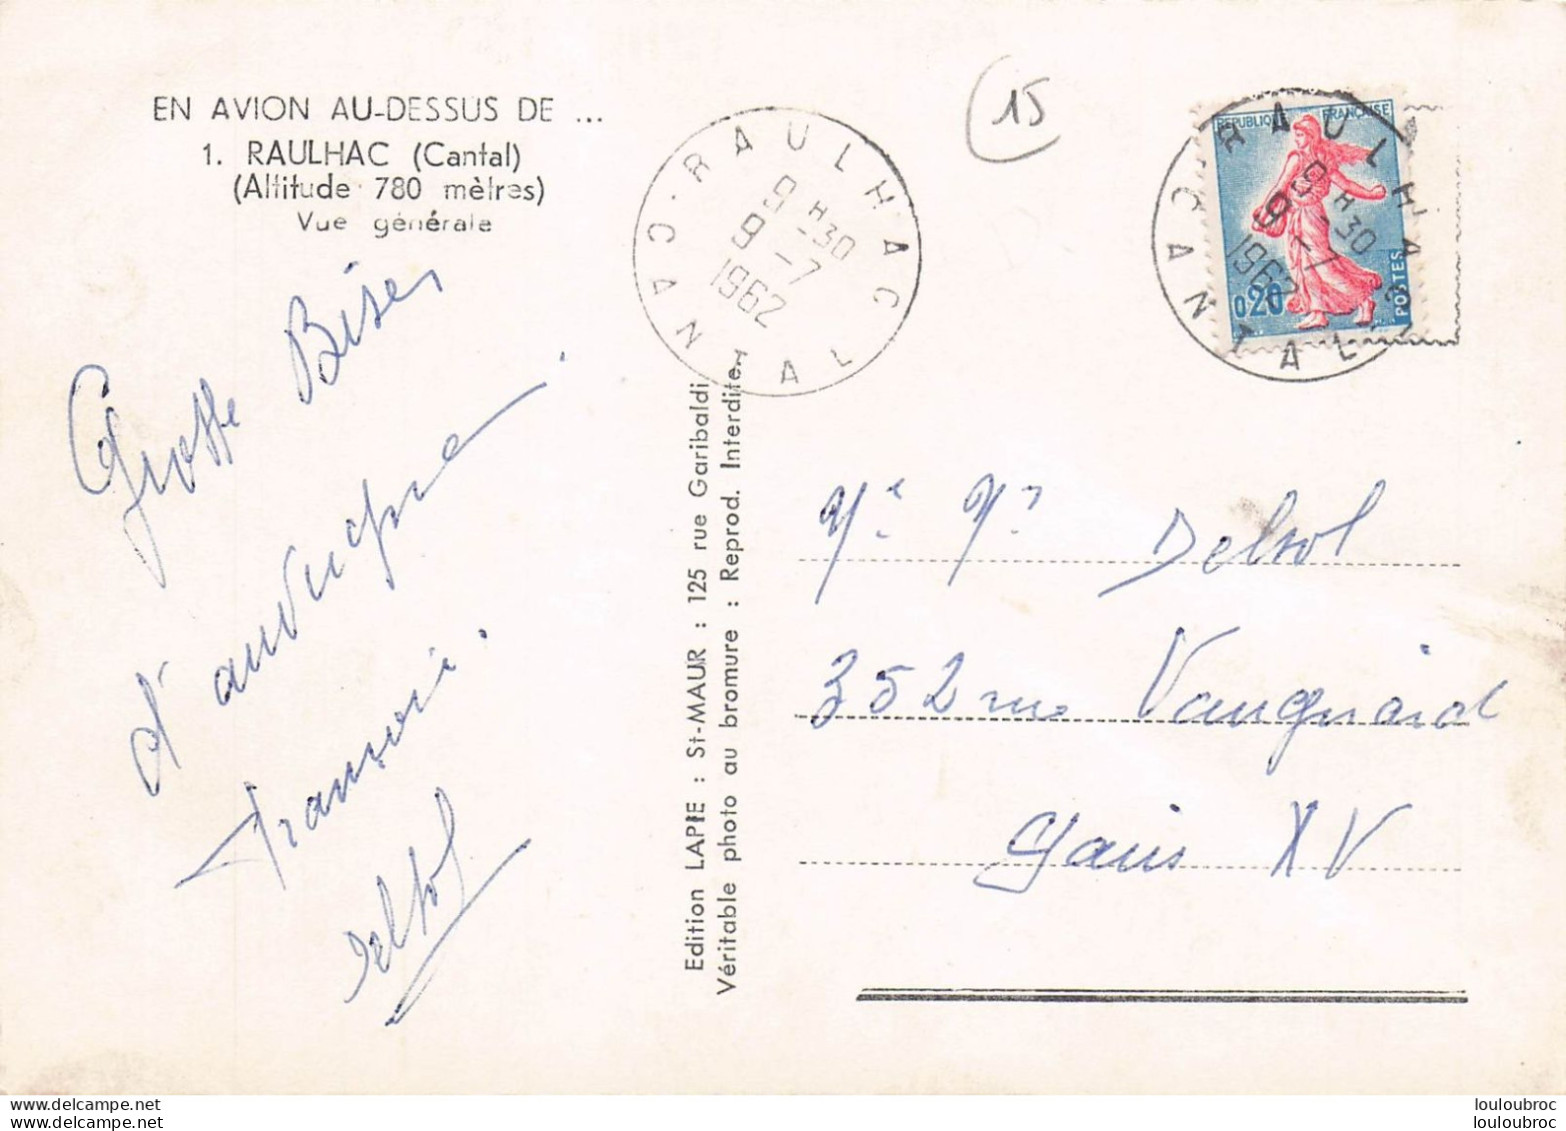 EN AVION AU-DESSUS DE ...
1. RAULHAC (Cantal)
(Altitude 780 mètres)
Vue générale
Grosse Bises
d'auvergne.
Françoise.
Delsol
RAULHAC
9H30
9-7
1962
CANTAL
15
RÉPUBLIQUE FRANÇAISE
0,20
POSTES
RAULHAC
9H30
9-7
1962
CANTAL
Edition LAPIE : St-MAUR : 125 rue Garibaldi
Véritable photo au bromure : Reprod. Interdite.
Delsol
352 rue Vaugirard
Paris XV
delcampe.net
louloubroc
louloubroc